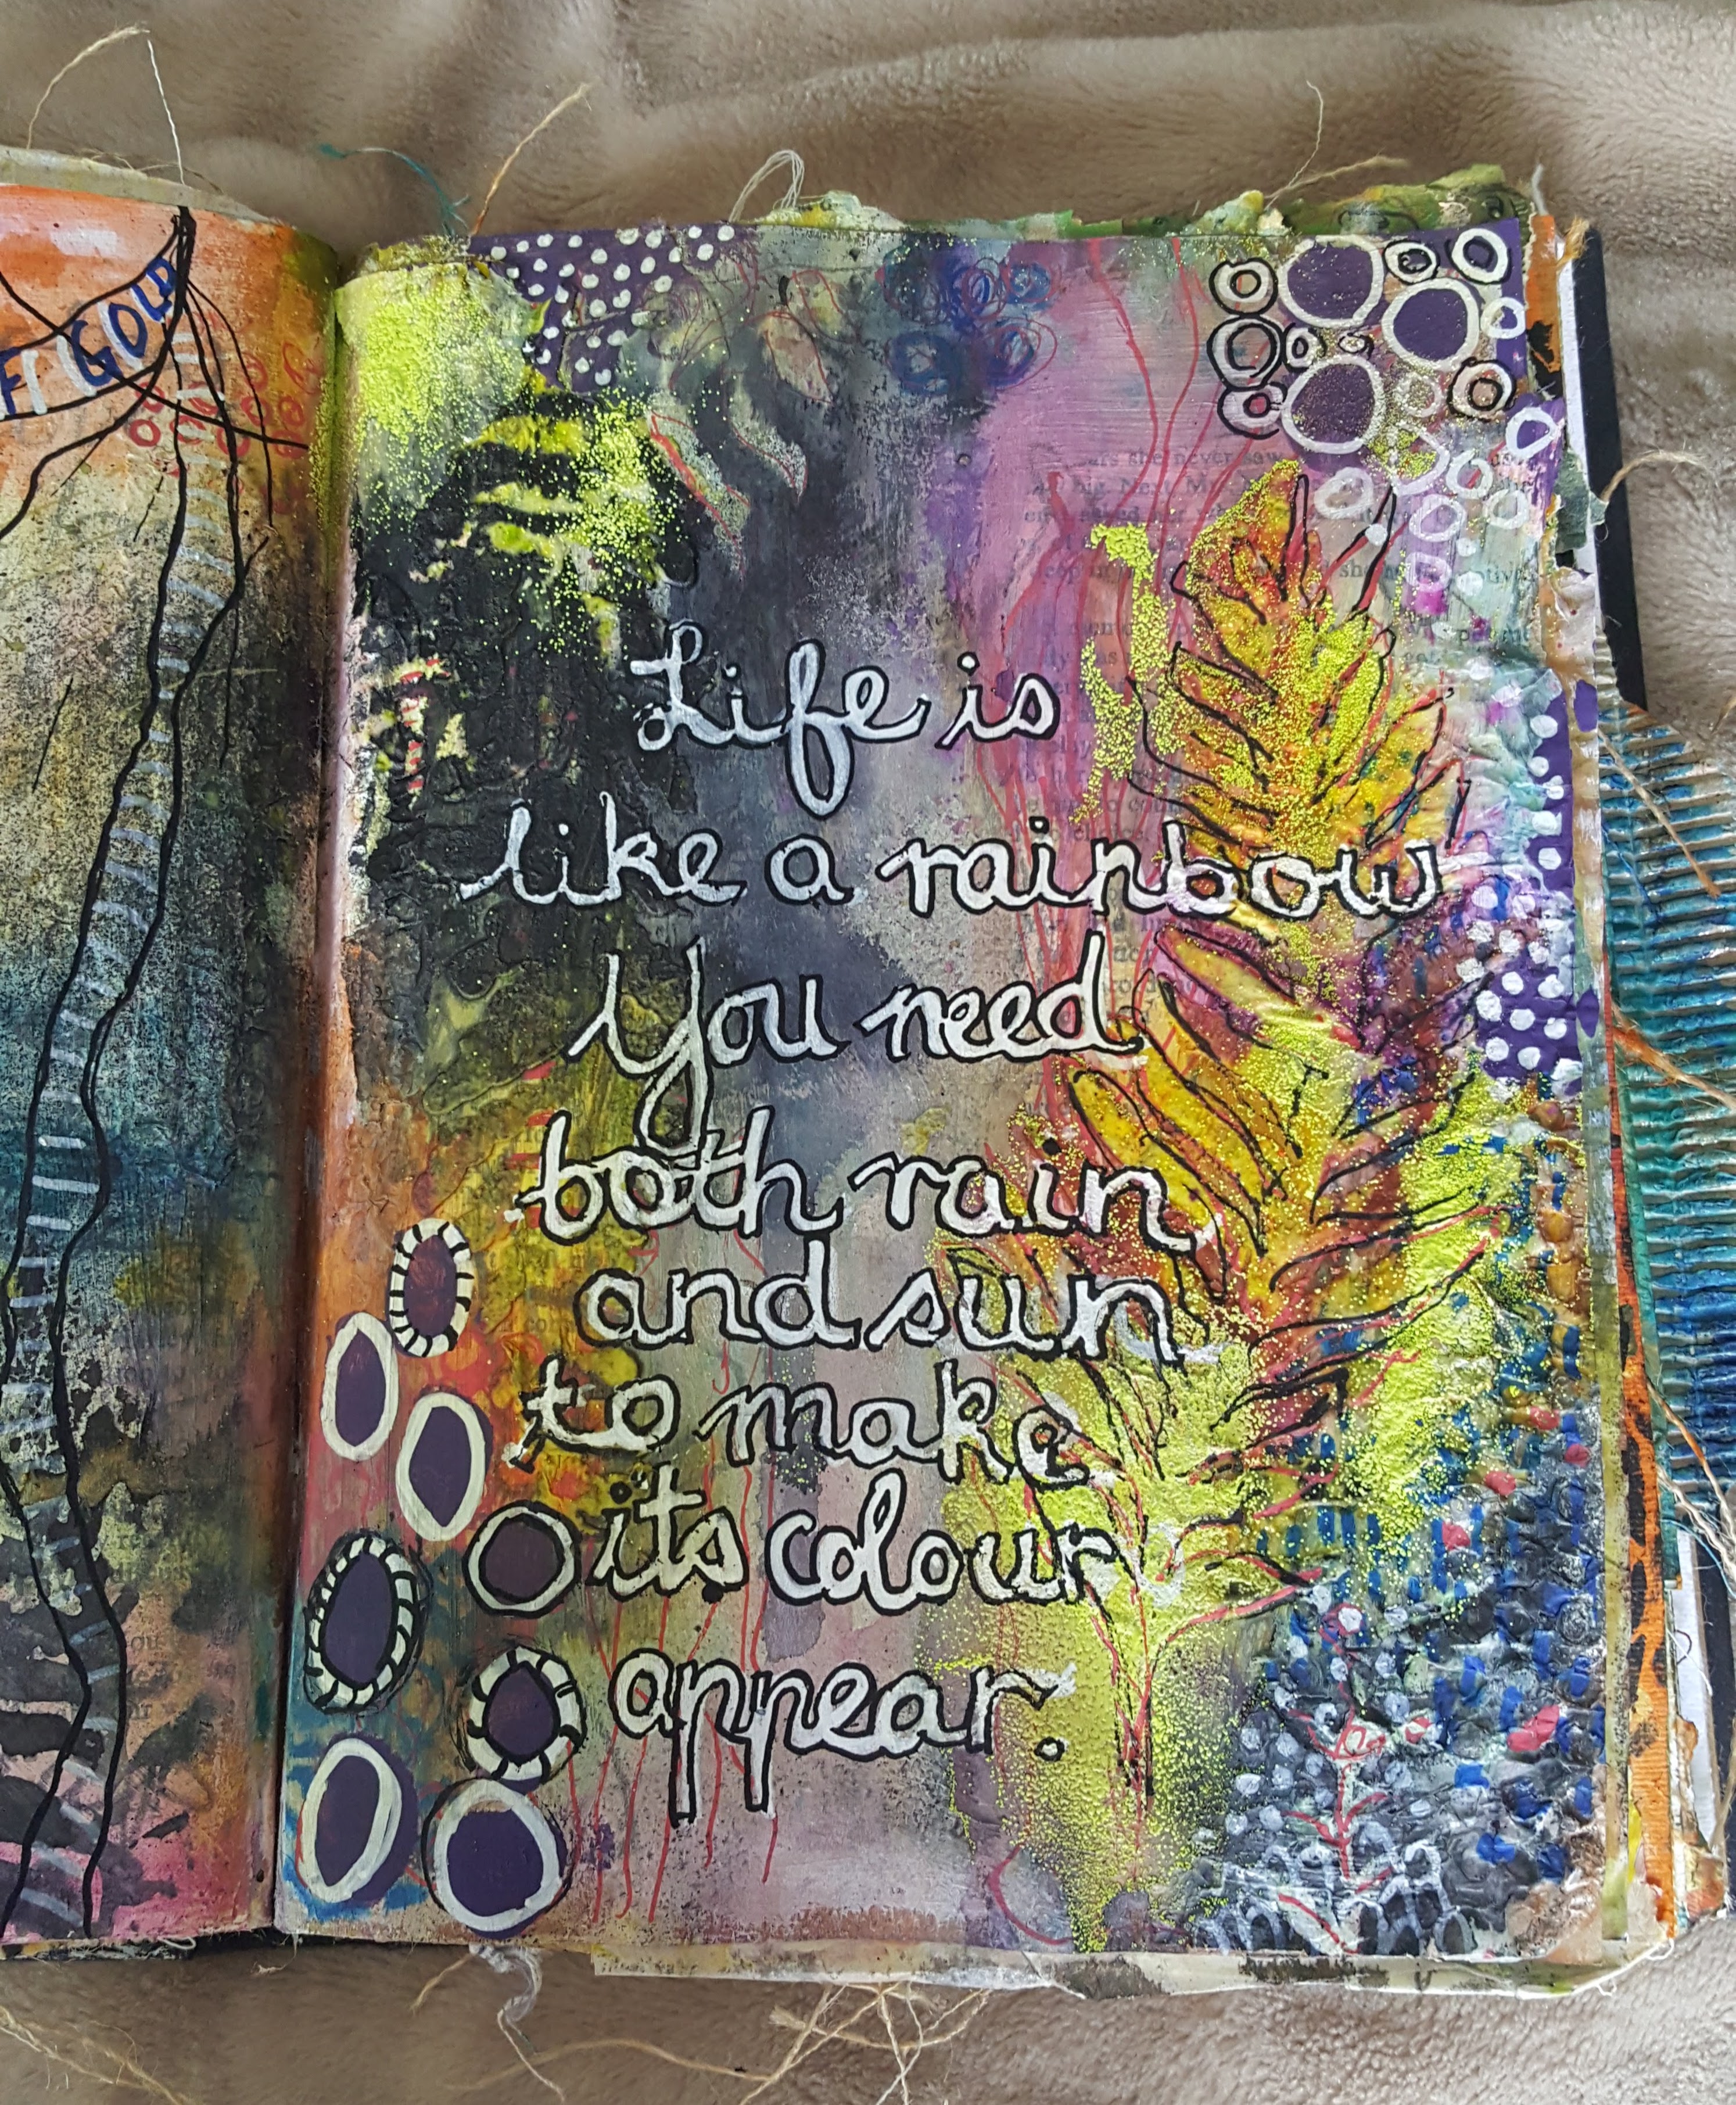 GOLD
Life is
like a rainbow
You need
both rain
and sun
to make
its colour
appear.